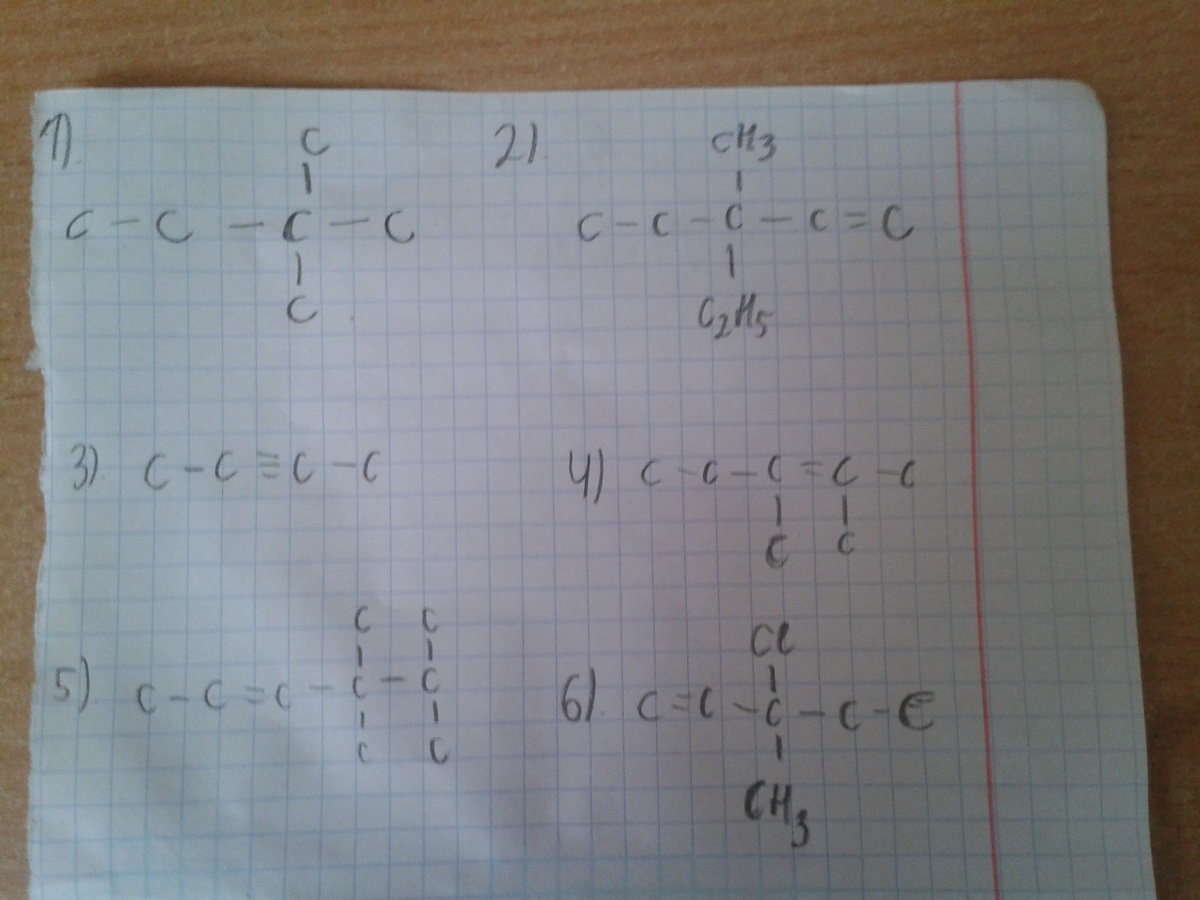 1) 2)
C CH3
| |
C - C - C - C C - C - C - C = C
| |
C C2H5
3) C - C ≡ C - C 4) C - C - C = C - C
| |
C C
C C Cl
| | |
5) C - C = C - C - C 6) C = C - C - C - C
| | |
C C CH3